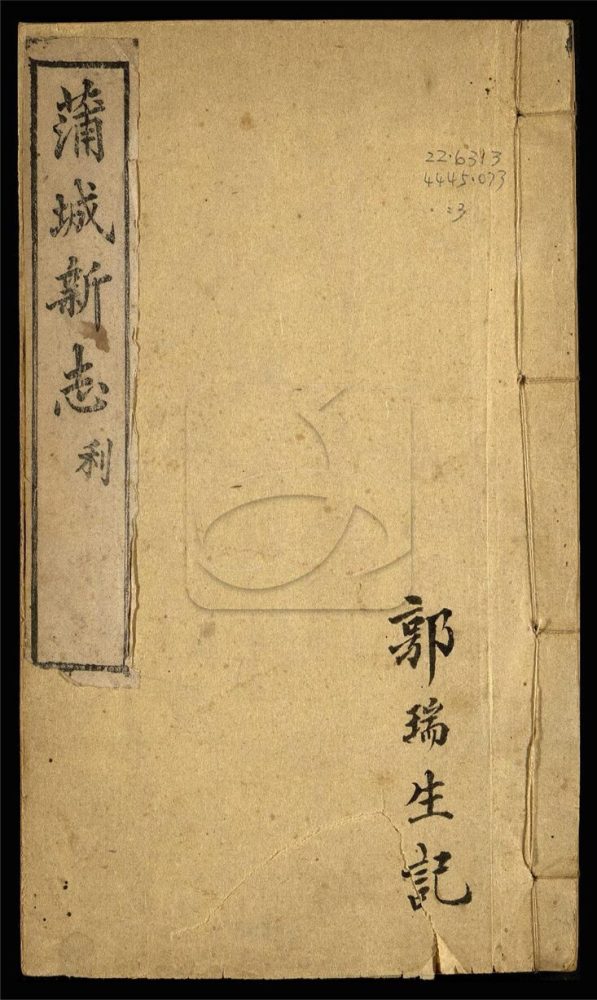 蒲城新志 利
22.6313
4445.073
:3
郭瑞生記